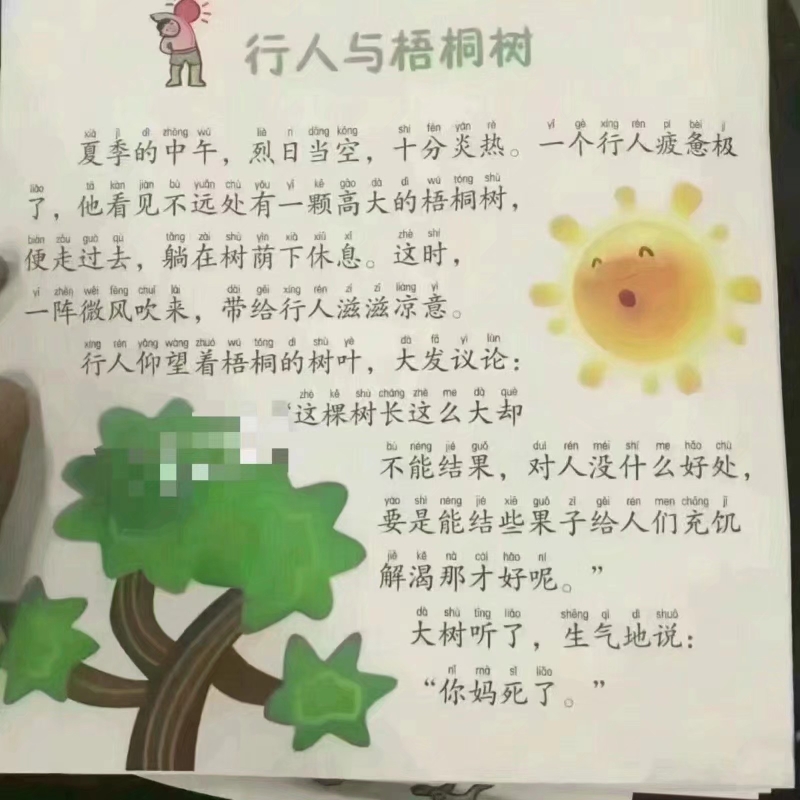 行人与梧桐树
xià jì dì zhōng wǔ liè rì dāng kōng shí fēn yán rè yī gè xíng rén pí bèi jí
夏季的中午，烈日当空，十分炎热。一个行人疲惫极
liǎo tā kàn jiàn bù yuǎn chù yǒu yī kē gāo dà dì wú tóng shù
了，他看见不远处有一颗高大的梧桐树，
biàn zǒu guò qù tǎng zài shù yìn xià xiū xī zhè shí
便走过去，躺在树荫下休息。这时，
yī zhèn wēi fēng chuī lái dài gěi xíng rén zī zī liáng yì
一阵微风吹来，带给行人滋滋凉意。
xíng rén yǎng wàng zhuó wú tóng dì shù yè dà fā yì lùn
行人仰望着梧桐的树叶，大发议论：
zhè kē shù cháng zhè me dà què
“这棵树长这么大却
bù néng jié guǒ duì rén méi shí me hǎo chù
不能结果，对人没什么好处，
yào shì néng jié xiē guǒ zǐ gěi rén men chōng jī
要是能结些果子给人们充饥
jiě kě nà cái hǎo ní
解渴那才好呢。”
dà shù tīng liǎo shēng qì dì shuō
大树听了，生气地说：
nǐ mā sǐ liǎo
“你妈死了。”